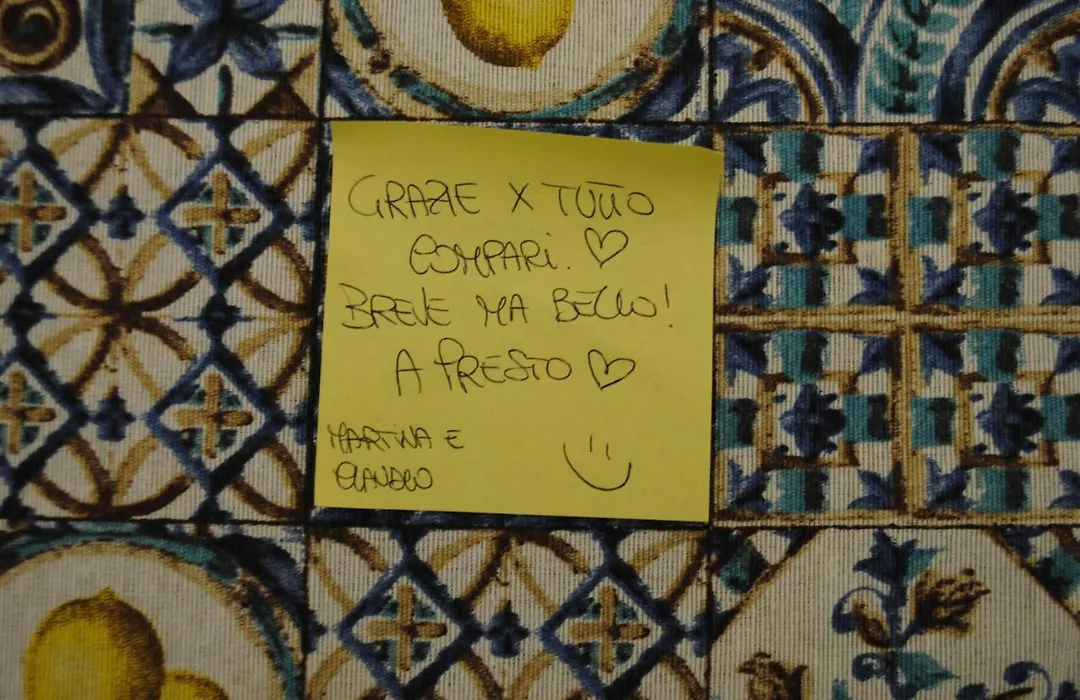 GRAZIE X TUTTO
COMPARI. ♡
BREVE MA BELLO!
A PRESTO ♡
MARTINA E
CLAUDIO